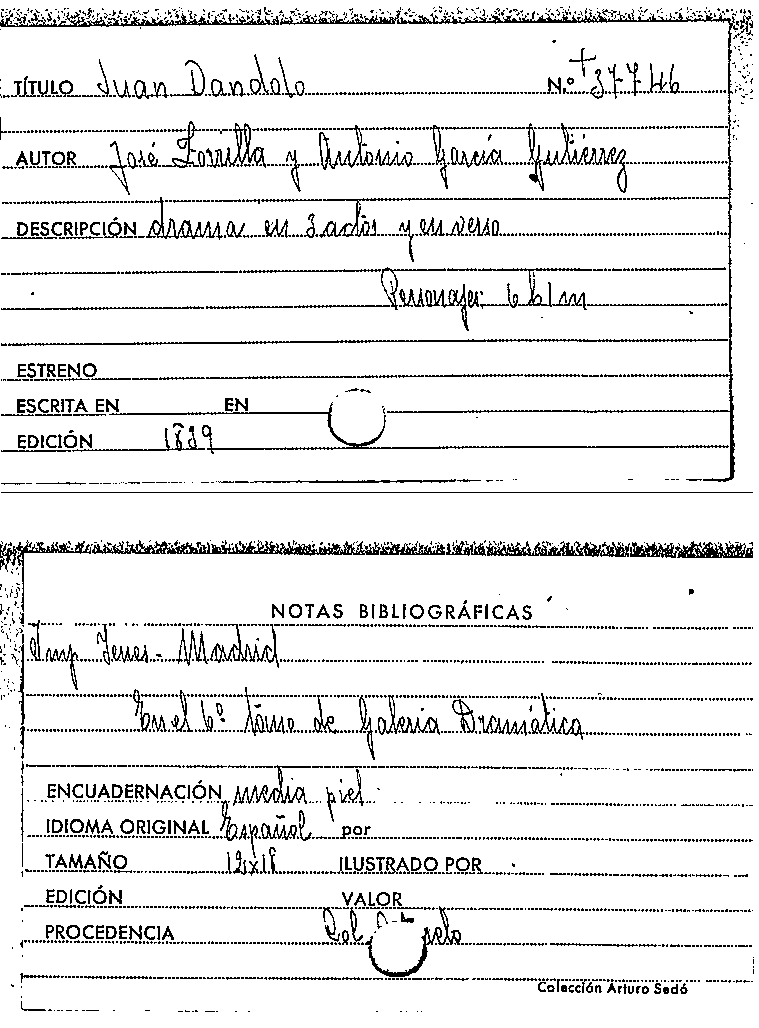 TÍTULO Juan Dandolo N.º +37746
AUTOR José Zorrilla y Antonio García Gutiérrez
DESCRIPCIÓN drama en 3 actos y en verso
Personajes: 6 h 1 m
ESTRENO
ESCRITA EN EN
EDICIÓN 1839
NOTAS BIBLIOGRÁFICAS
Imp Yenes - Madrid
En el 6º tomo de Galeria Dramática
ENCUADERNACIÓN media piel
IDIOMA ORIGINAL Español por
TAMAÑO 12x18 ILUSTRADO POR
EDICIÓN VALOR
PROCEDENCIA
Colección Arturo Sedó